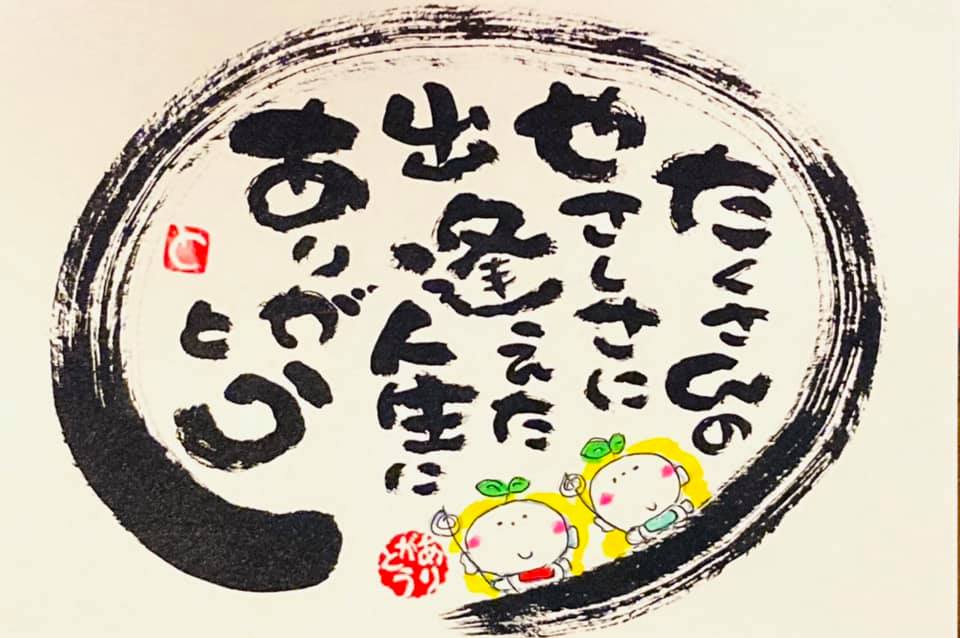 たくさんの
やさしさに
出逢えた
人生に
ありがとう
ありがとう